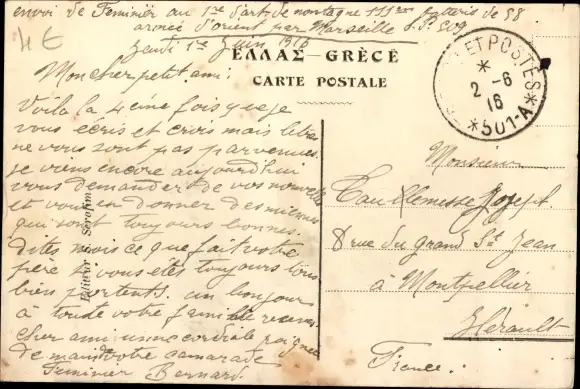 envoi de Feminier au 1er d'art de montagne 111eme Baterie de 58
armée d'orient par Marseille S.P. 509
jeudi 1er Juin 1916
4€
ΕΛΛΑΣ – GRÈCE
CARTE POSTALE
ET POSTES
*
2 -6
16
*501-A*
Mon cher petit ami
Voila la 4eme fois que je
vous écris et crois mais letres
ne vous sont pas parvenues.
je viens encore aujourd'hui
vous demander de vos nouvelles
et vous en donner des miennes
qui sont toujours bonnes.
Dites mois ce que fait votre
père et vous etes toujours tous
bien portents. un bonjour
à toute votre famille recevez
cher ami une cordiale poignee
de main votre camarade
Feminier Bernard.
Monsieur
Joseph
8 rue du Grand St Jean
à Montpellier
Hérault
France.